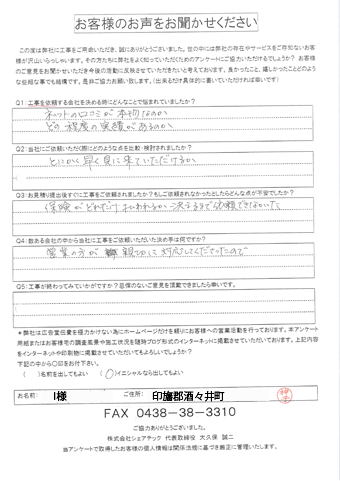 お客様のお声をお聞かせください
この度は弊社に工事をご用命いただき、誠にありがとうございました。世の中には弊社の存在やサービスをご存知ないお客
様が沢山いらっしゃいます。その方たちに弊社をよく知っていただくためのアンケートにご協力いただけるでしょうか？お客様
のご意見をお聞かせいただき今後の活動に反映させていただきたいと考えております。良かったこと、嬉しかったことどのよう
な些細な事でも結構です。是非ご協力お願い致します。(出来るだけ具体的に書いていただければ幸いです)
Q1：工事を依頼する会社を決める時にどんなことで悩まれていましたか？
ネットの口コミが本物なのか
どの程度の実績があるのか
Q2：当社にご依頼いただく際にどのような点を比較・検討されましたか？
とにかく早く見に来ていただけるか
Q3：お見積り提出後すぐに工事をご依頼されましたか？もしご依頼されなかったとしたらどんな点が不安でしたか？
保険がどれだけ払われるか決まるまで依頼できないた
Q4：数ある会社の中から当社に工事をご依頼いただいた決め手は何ですか？
営業の方が 親切に対応してくださったので
Q5：工事が終わってみていかがですか？忌憚のないご意見を頂戴できましたら幸いです。
＊弊社は広告宣伝費を極力かけない為にホームページだけを頼りにお客様への営業活動を行っております。本アンケート
用紙またはお客様宅の調査風景や施工状況を随時ブログ形式のインターネットに掲載させていただいております。上記内容
をインターネットや印刷物に掲載させていただいてもよろしいでしょうか？
下記の中から〇印をお付下さい。
( )名前を出してもよい (〇)イニシャルなら出してもよい
お名前： I様 ご住所： 印旛郡酒々井町
FAX 0438-38-3310
ご協力ありがとうございました。
株式会社シェアテック 代表取締役 大久保 誠二
当アンケートで取得したお客様の個人情報は関係法規に基づき厳正に管理いたします。